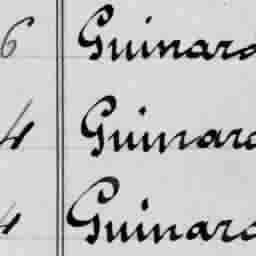 6 Guinard
4 Guinard
4 Guinard